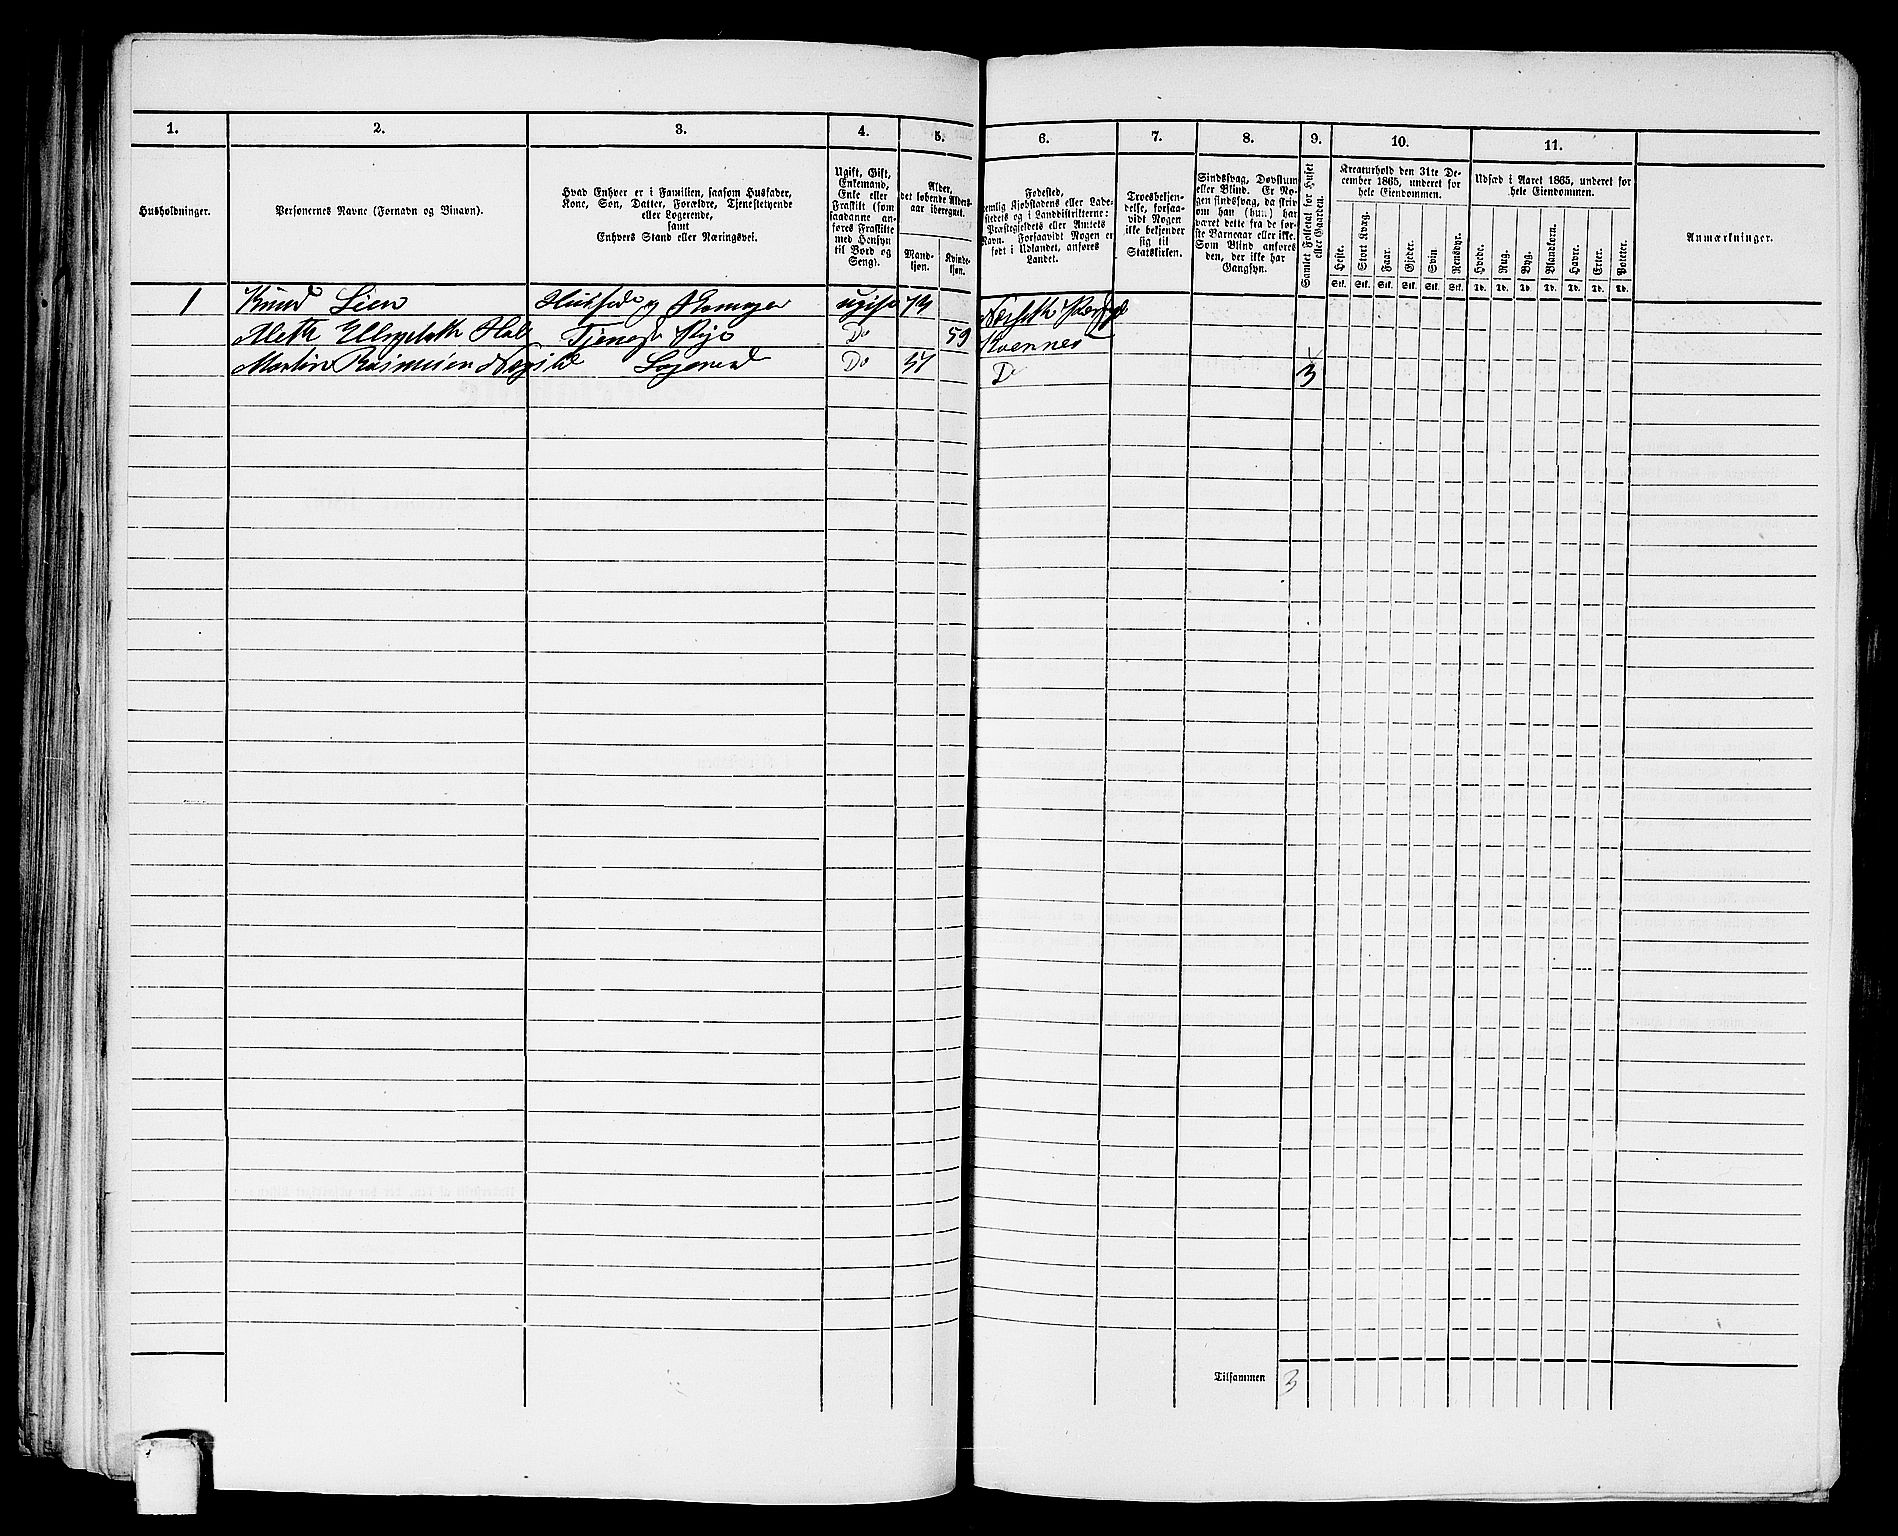 1. 2. 3. 4. 5. 6. 7. 8. 9. 10. 11.
Husholdninger.
Personernes Navne (Fornavn og Binavn).
Hvad Enhver er i Familien, saasom Husfader,
Kone, Søn, Datter, Forældre, Tjenestetyende
eller Logerende,
samt
Enhvers Stand eller Næringsvei.
Ugift, Gift,
Enkemand,
Enke eller
Fraskilt (som
saadanne an-
føres Fraskilte
med Hensyn
til Bord og
Seng).
Alder,
det løbende Alders-
aar iberegnet.
Mand-
kjøn.
Kvinde-
kjøn.
Fødested,
nemlig Kjøbstadens eller Lade-
stedets og i Landdistrikterne:
Præstegjeldets eller Annexets
Navn. Forsaavidt Nogen er
født i Udlandet, anføres
Landet.
Troesbekjen-
delse, forsaa-
vidt Nogen
ikke bekjender
sig til
Statskirken.
Sindssvag, Døvstum
eller Blind. Er No-
gen sindssvag, da skriv
om han (hun) har
været dette fra de før-
ste Barneaar eller ikke.
Som Blind anføres
den, der ikke har
Gangsyn.
Samlet Folketal for Huset
eller Gaarden.
Kreaturhold den 31te De-
cember 1865, underet for
hele Eiendommen.
Heste. Stort Kvæg. Faar. Gjeder. Svin. Rensdyr.
Stk. Stk. Stk. Stk. Stk. Stk.
Udsæd i Aaret 1865, underet for
hele Eiendommen.
Hvede. Rug. Byg. Blandkorn. Havre. Erter. Poteter.
Td. Td. Td. Td. Td. Td. Td.
Anmærkninger.
1 Knud Lien Husfader ugift
Elisabeth Tjeneste Pige Do 59 Kvernnes
Martin Rasmusen Logerend Do 37 Do 3
Tilsammen 3